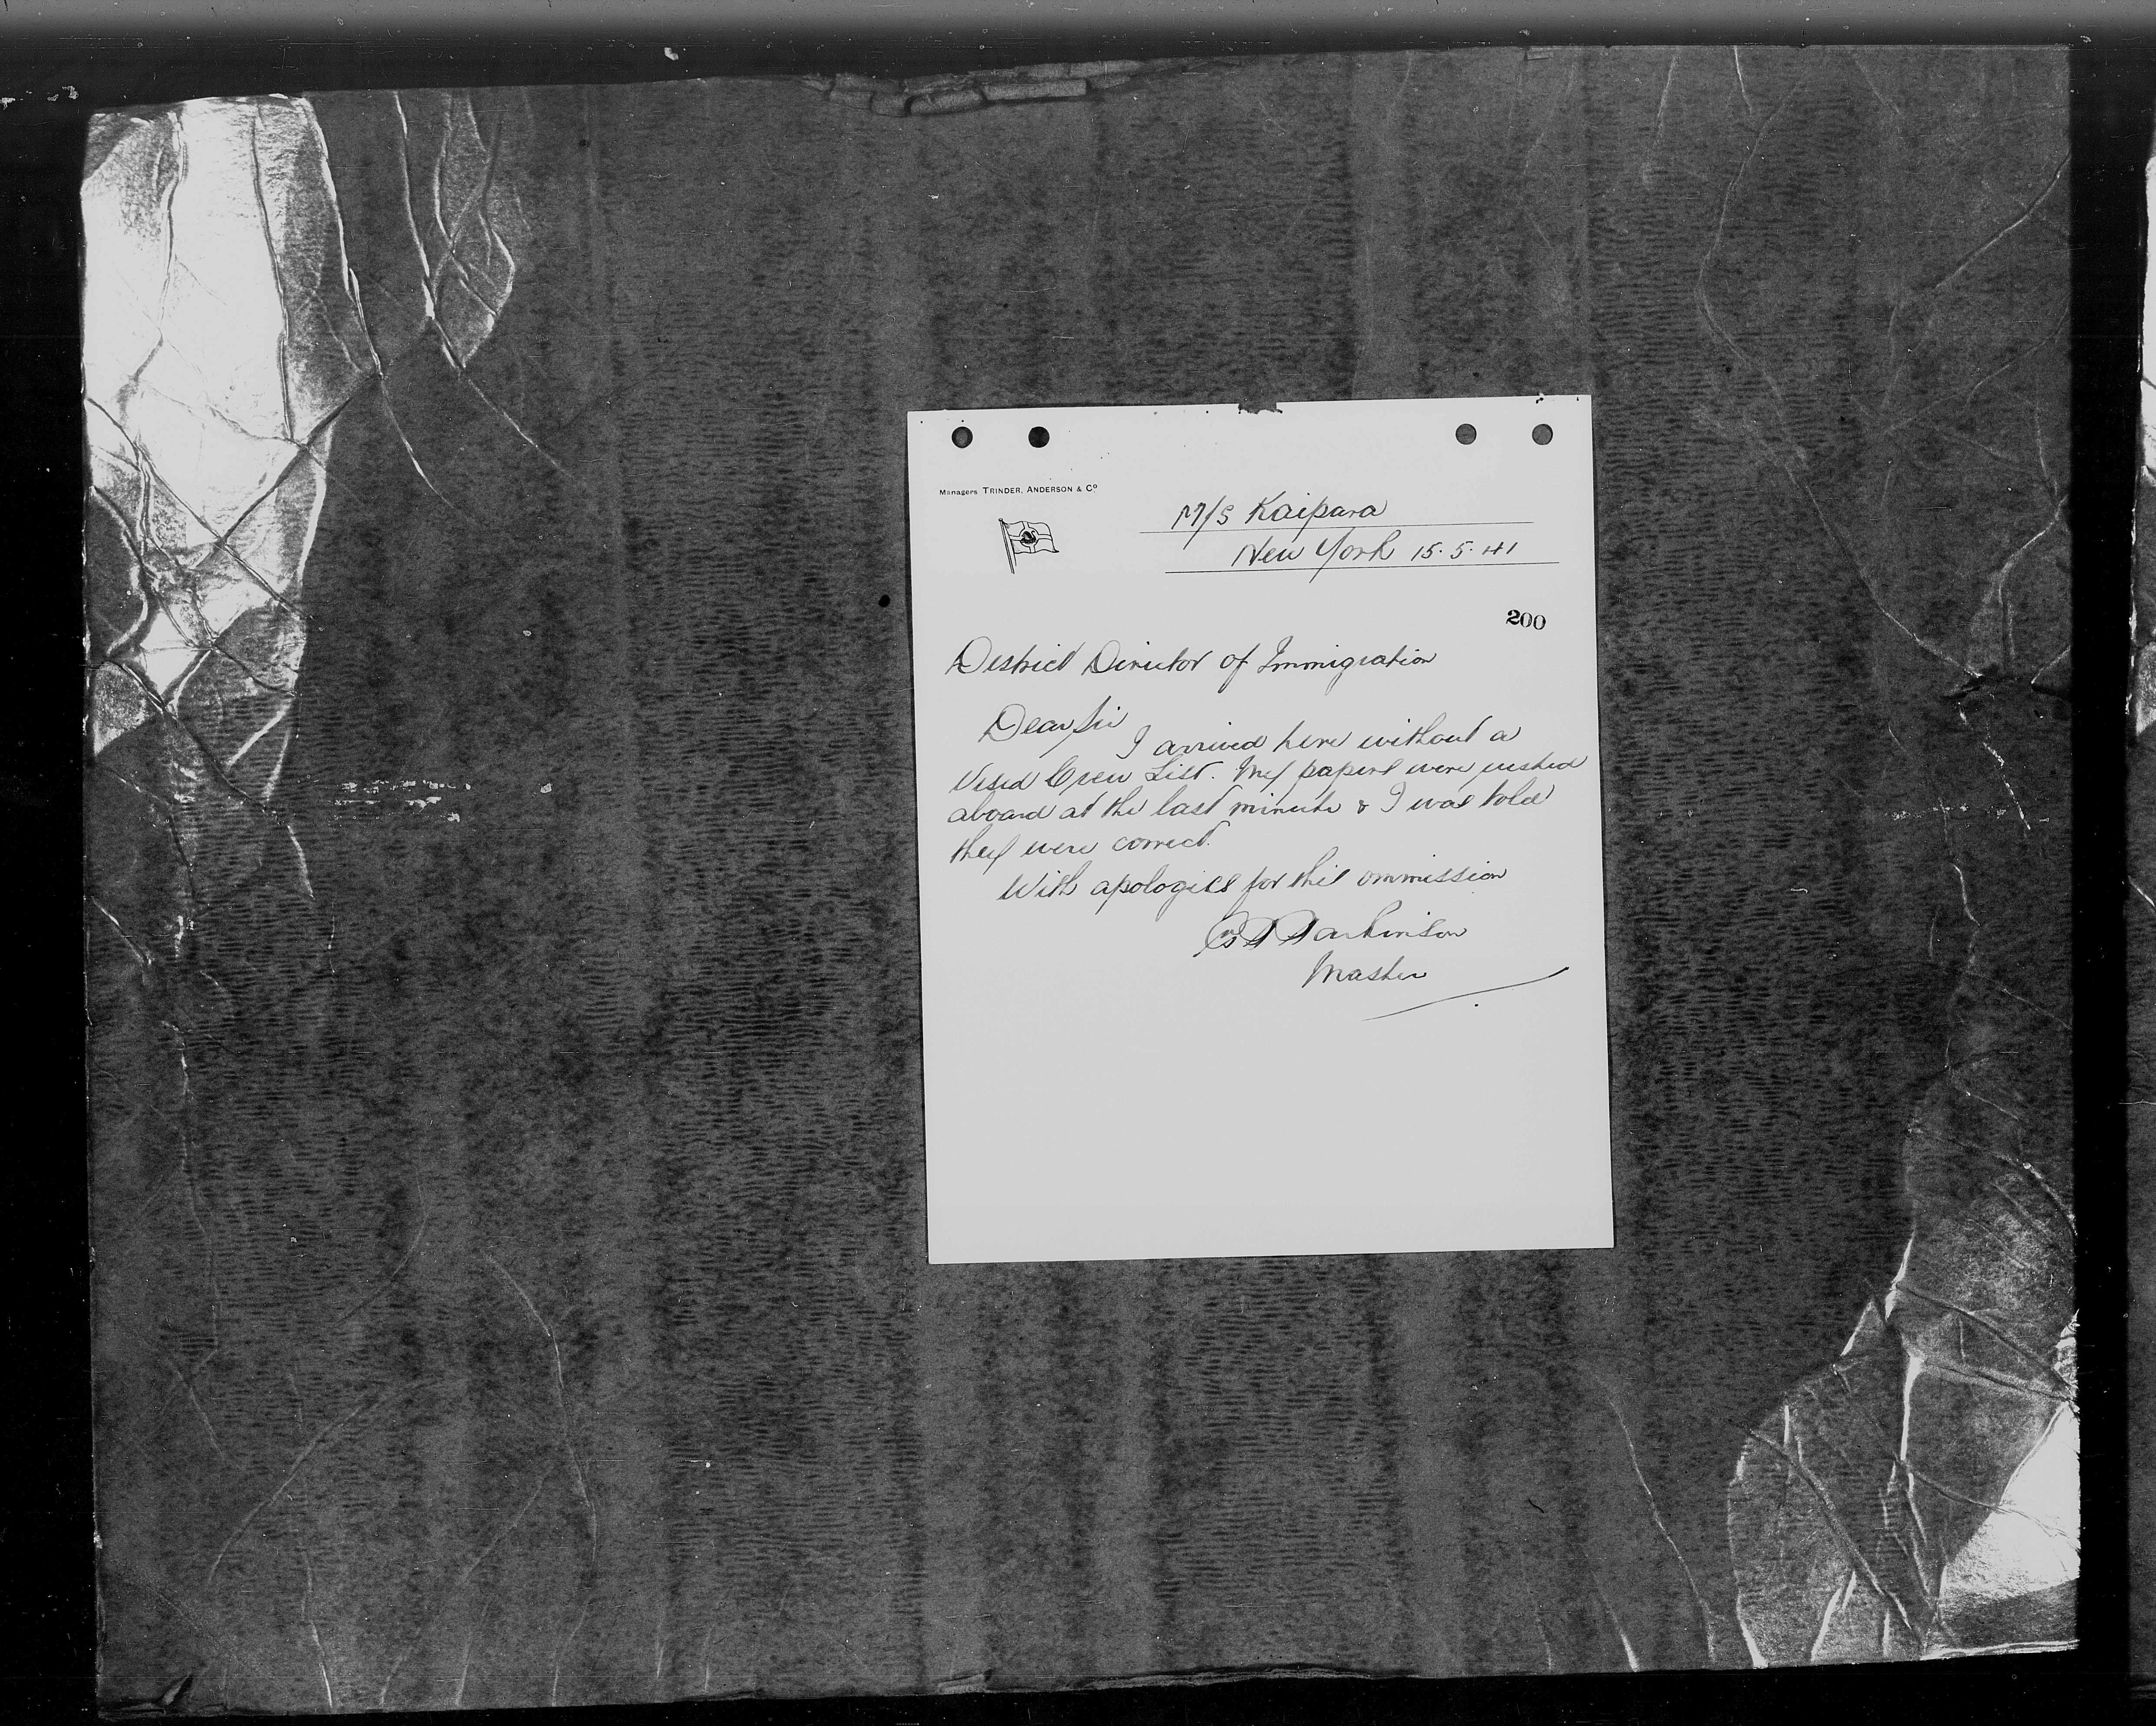 Managers TRINDER, ANDERSON & Cº
M/S Kaipara
New York 15.5.41
200
District Director of Immigration
Dear Sir
I arrived here without a
Visid Crew List. My papers were rushed
aboard at the last minute & I was told
they were correct.
With apologies for this ommission
Parkinson
Master